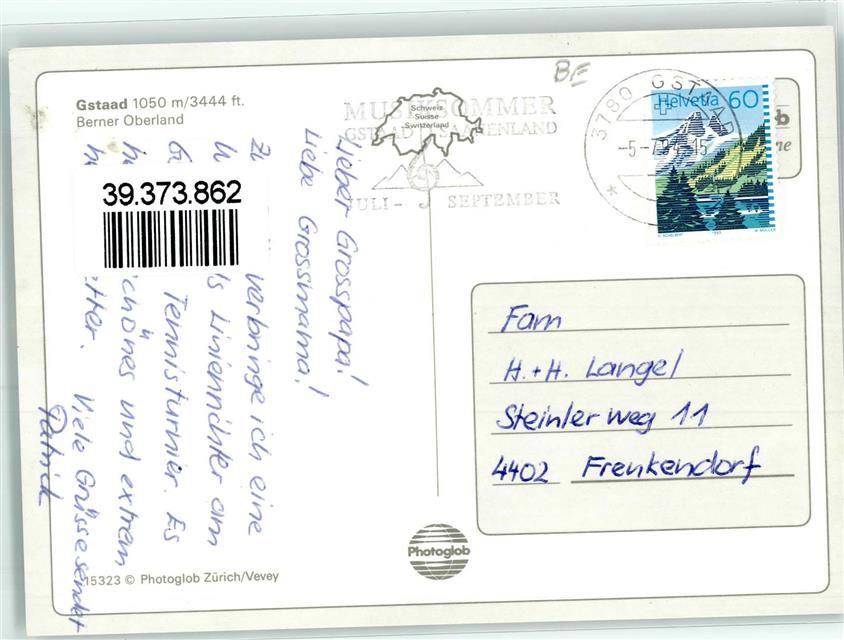 Gstaad 1050 m/3444 ft.
Berner Oberland
BE
MUSIKSOMMER
GSTAAD SAANENLAND
JULI - SEPTEMBER
Schweiz
Suisse
Switzerland
3780 GSTAAD
Helvetia 60
39.373.862
Lieber Grosspapa!
Liebe Grossmama!
verbringe ich eine
ls Linienrichter am
Tennisturnier. Es
chönes und extrem
tter. Viele Grüsse sendet
Patrick
Fam
H. + H. Langel
Steinler weg 11
4402 Frenkendorf
Photoglob
15323 © Photoglob Zürich/Vevey